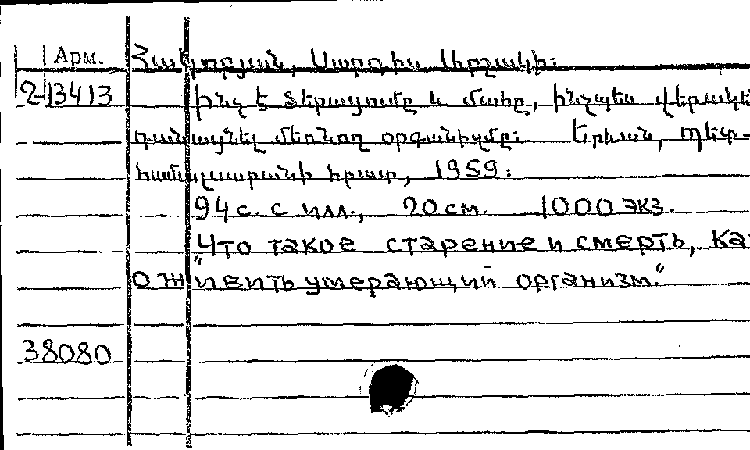 Арм. Հակոբյան, Սարգիս Արշակի։
2-13413 Ինչ է ծերացումը և մահը, ինչպես վերակե
դանացնել մեռնող օրգանիզմը։ Երևան, Պետ-
համալսարանի հրատ., 1959։
94 с. с илл., 20 см. 1000 экз.
"Что такое старение и смерть, ка
оживить умерающий организм."
38080